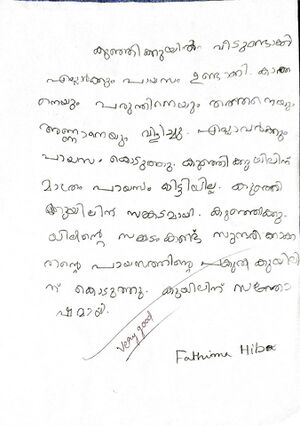 കുഞ്ഞിക്കുയിൽ വീടുണ്ടാക്കി
എല്ലാർക്കും പായസം ഉണ്ടാക്കി. കാക്ക
നെയും പരുന്തിനെയും തത്തനെയും
അണ്ണാനേയും വിളിച്ചു. എല്ലാവർക്കും
പായസം കൊടുത്തു. കുഞ്ഞിക്കുയിലിന്
മാത്രം പായസം കിട്ടിയില്ല. കുഞ്ഞി
ക്കുയിലിന് സങ്കടമായി. കുഞ്ഞിക്കു
യിലിന്റെ സങ്കടംകണ്ട് സുന്ദരികാക്ക
തന്റെ പായസത്തിന്റെ പകുതി കുയിലി
ന് കൊടുത്തു. കുയിലിന് സന്തോ
ഷമായ്.
very good
Fathima Hiba